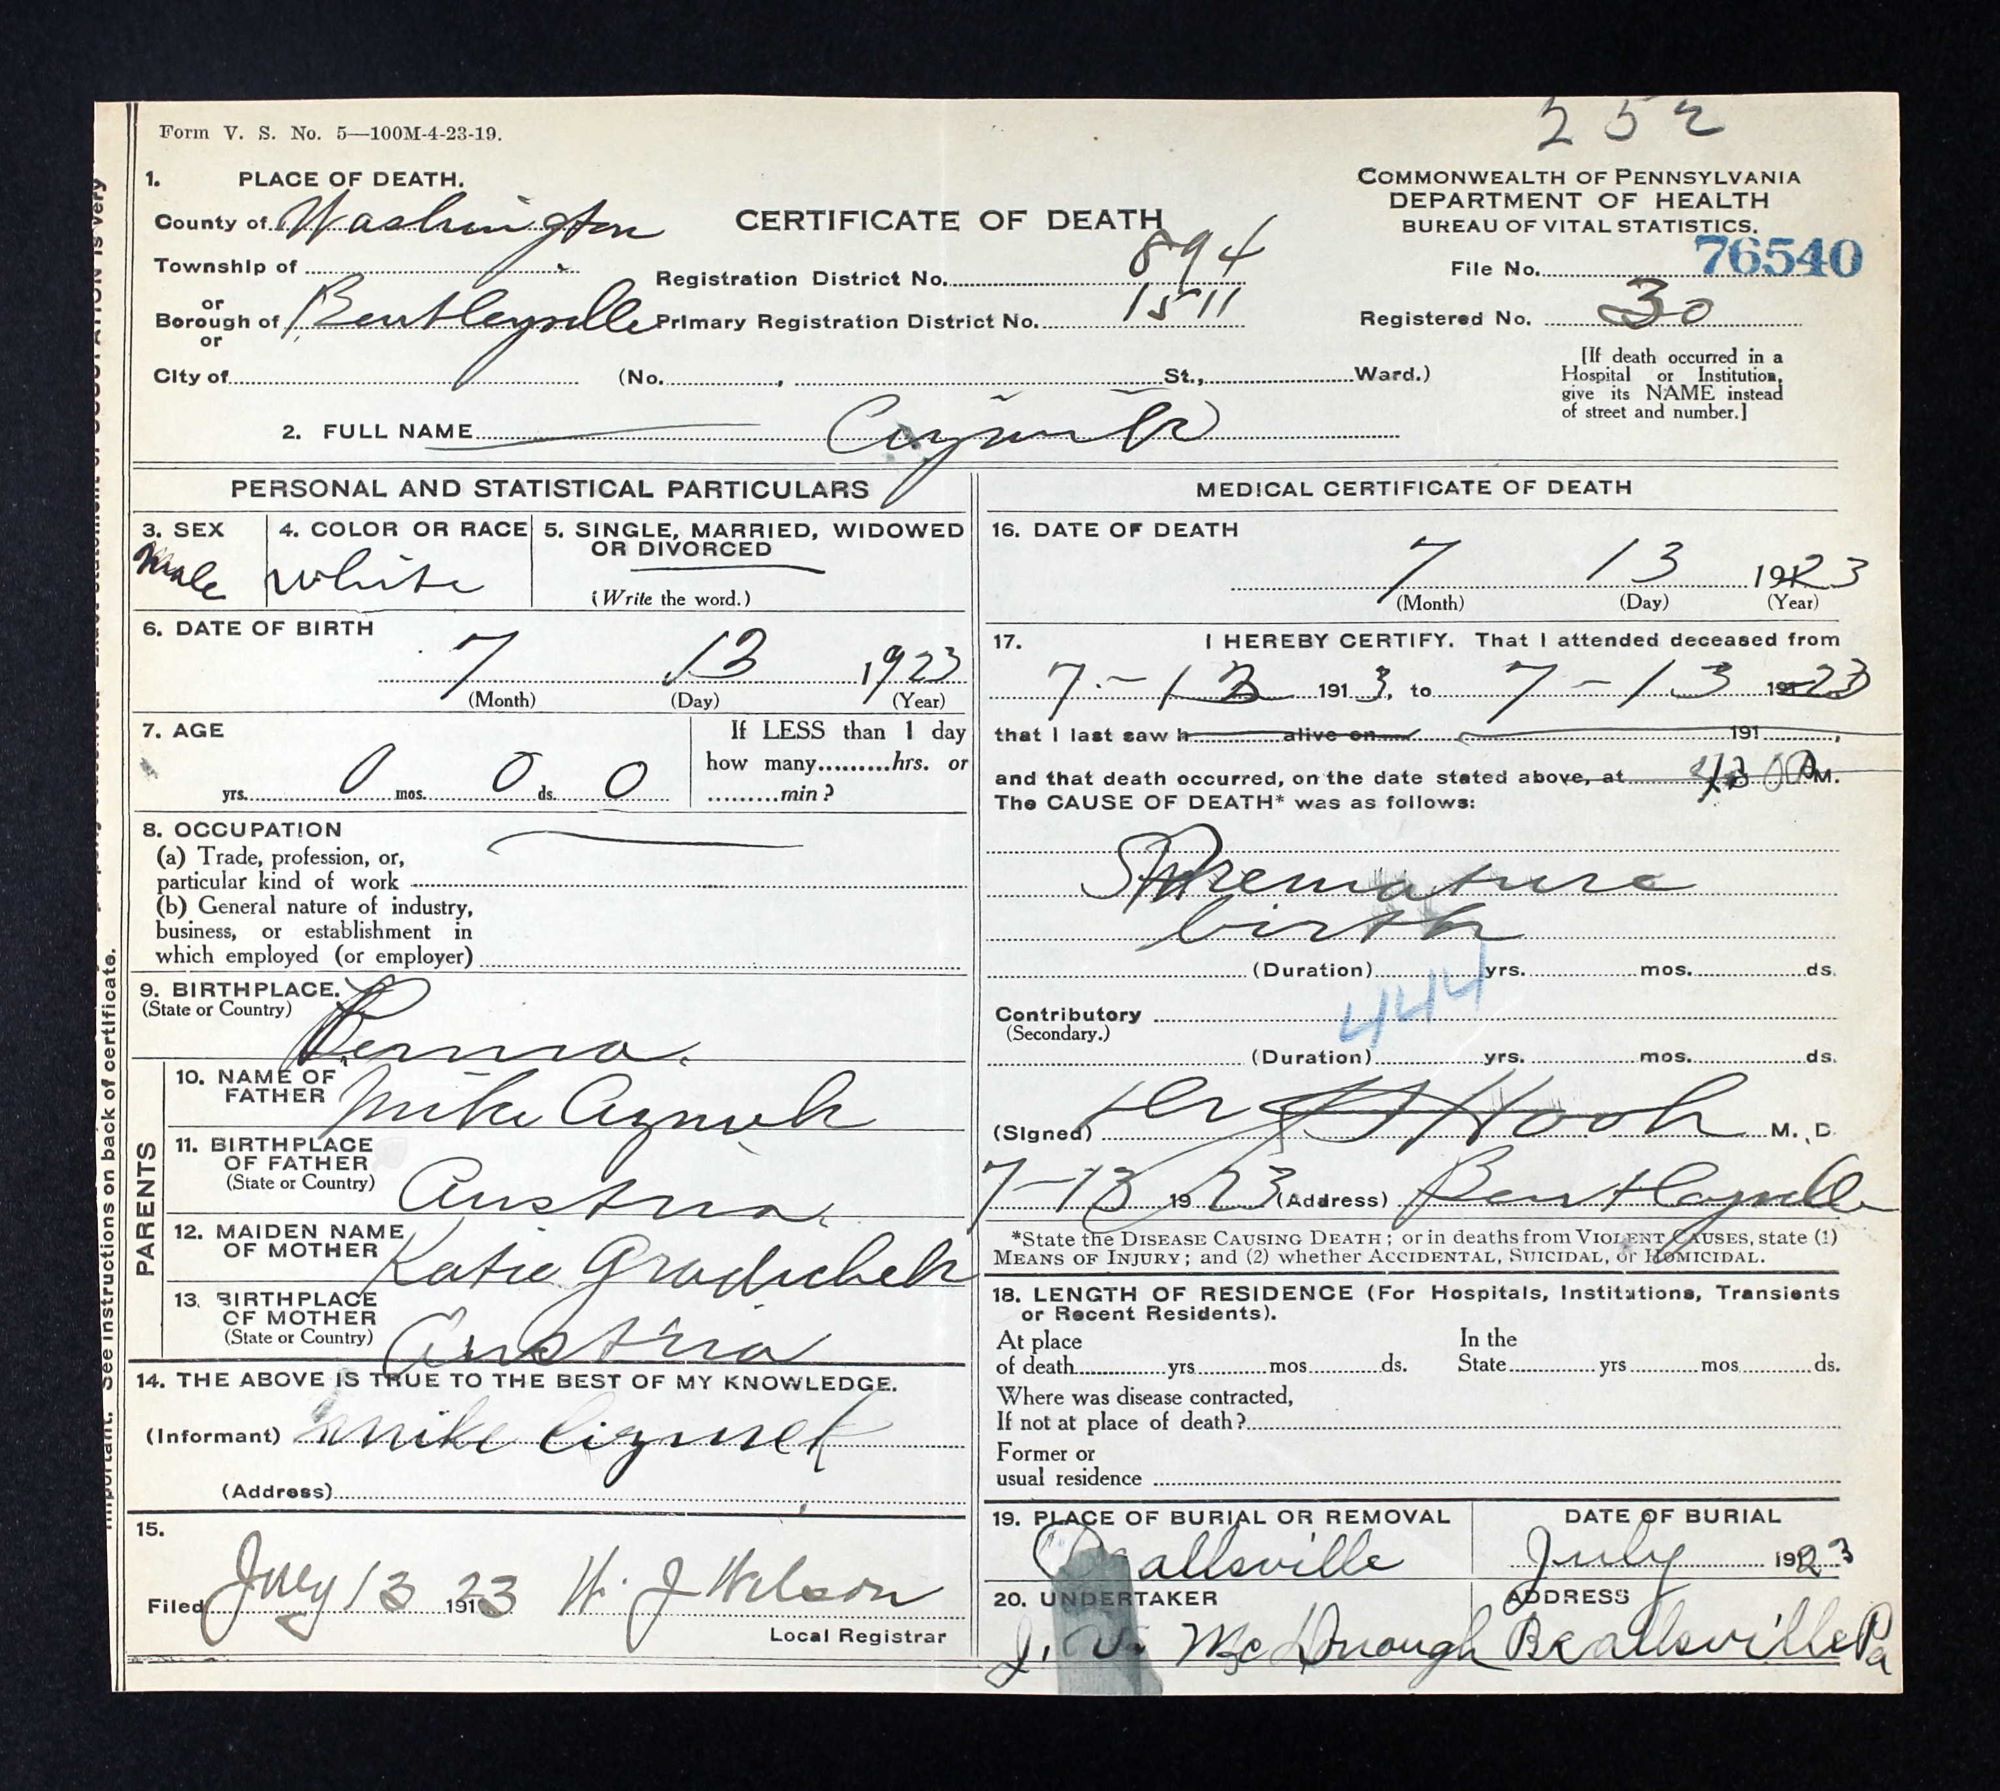 252
Form V. S. No. 5—100M-4-23-19.
1. PLACE OF DEATH.
County of Washington
Township of
or
Borough of Bentleyville
or
City of (No. , St., Ward.)
CERTIFICATE OF DEATH
Registration District No. 894
Primary Registration District No. 1511
COMMONWEALTH OF PENNSYLVANIA
DEPARTMENT OF HEALTH
BUREAU OF VITAL STATISTICS.
File No. 76540
Registered No. 30
[If death occurred in a
Hospital or Institution,
give its NAME instead
of street and number.]
2. FULL NAME
PERSONAL AND STATISTICAL PARTICULARS
3. SEX
Male
4. COLOR OR RACE
White
5. SINGLE, MARRIED, WIDOWED
OR DIVORCED
(Write the word.)
6. DATE OF BIRTH
7 13 1923
(Month) (Day) (Year)
7. AGE
yrs. 0 mos. 0 ds. 0
If LESS than 1 day
how many.........hrs. or
.........min?
8. OCCUPATION
(a) Trade, profession, or,
particular kind of work
(b) General nature of industry,
business, or establishment in
which employed (or employer)
9. BIRTHPLACE.
(State or Country)
Penna.
PARENTS
10. NAME OF
FATHER
Mike
11. BIRTHPLACE
OF FATHER
(State or Country)
Austria.
12. MAIDEN NAME
OF MOTHER
Katie
13. BIRTHPLACE
OF MOTHER
(State or Country)
Austria
14. THE ABOVE IS TRUE TO THE BEST OF MY KNOWLEDGE.
(Informant) Mike
(Address)
15.
Filed July 13 1923 W. J. Wilson
Local Registrar
MEDICAL CERTIFICATE OF DEATH
16. DATE OF DEATH
7 13 1923
(Month) (Day) (Year)
17. I HEREBY CERTIFY. That I attended deceased from
7-13 1913, to 7-13 1923
that I last saw h alive on 191 ,
and that death occurred, on the date stated above, at M.
The CAUSE OF DEATH* was as follows:
Premature
birth
(Duration) yrs. mos. ds.
444
Contributory
(Secondary.)
(Duration) yrs. mos. ds.
(Signed) Hook M. D.
7-13 1923 (Address) Bentleyville
*State the DISEASE CAUSING DEATH; or in deaths from VIOLENT CAUSES, state (1)
MEANS OF INJURY; and (2) whether ACCIDENTAL, SUICIDAL, or HOMICIDAL.
18. LENGTH OF RESIDENCE (For Hospitals, Institutions, Transients
or Recent Residents).
At place
of death yrs mos ds.
In the
State yrs mos ds.
Where was disease contracted,
If not at place of death?
Former or
usual residence
19. PLACE OF BURIAL OR REMOVAL
Beallsville
DATE OF BURIAL
July 1923
20. UNDERTAKER
J. V. McDonough
ADDRESS
Beallsville Pa
important. See instructions on back of certificate.